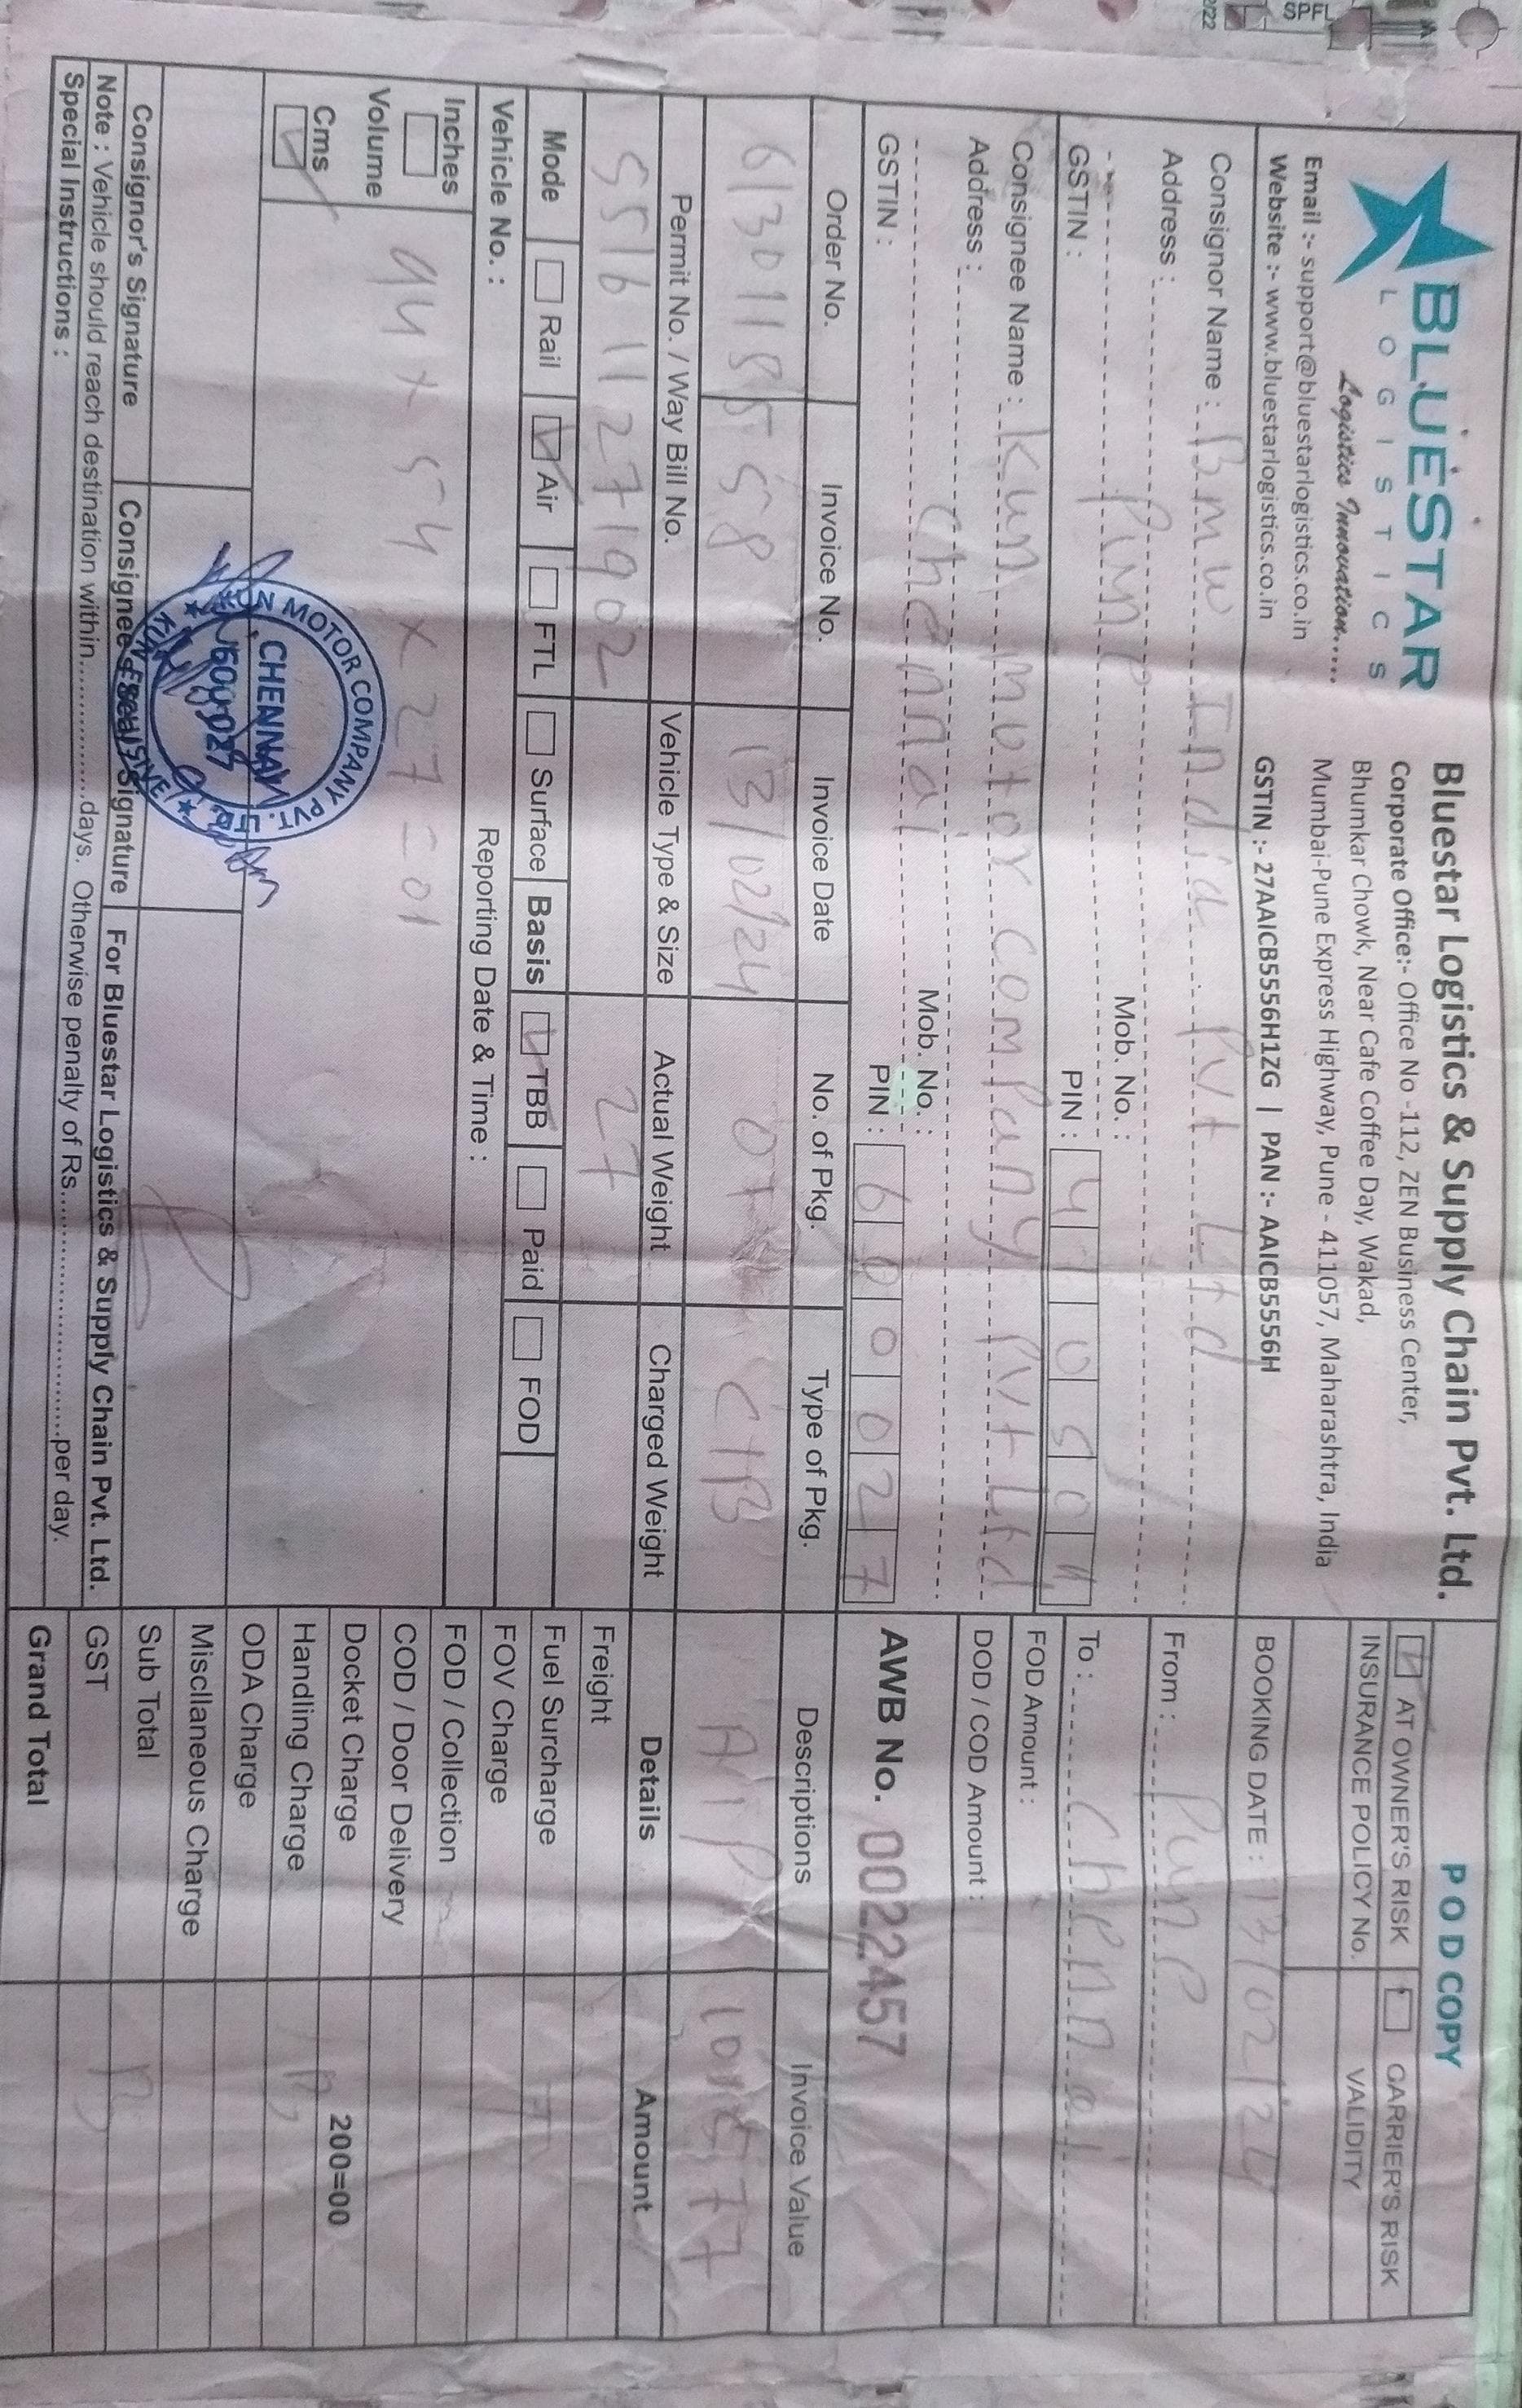 BLUESTAR
LOGISTICS
Logistics Innovation.....
Email :- support@bluestarlogistics.co.in
Website :- www.bluestarlogistics.co.in
Bluestar Logistics & Supply Chain Pvt. Ltd.
Corporate Office:- Office No -112, ZEN Business Center,
Bhumkar Chowk, Near Cafe Coffee Day, Wakad,
Mumbai-Pune Express Highway, Pune - 411057, Maharashtra, India
GSTIN :- 27AAICB5556H1ZG | PAN :- AAICB5556H
POD COPY
AT OWNER'S RISK CARRIER'S RISK
INSURANCE POLICY No. VALIDITY
BOOKING DATE : 13/02/24
Consignor Name : Bmw India Pvt Ltd
Address :
Pune
Mob. No. :
GSTIN :
PIN : 410501
From : Pune
To : Chennai
FOD Amount :
DOD / COD Amount :
Consignee Name : Kun motor company Pvt Ltd
Address :
Chennai
Mob. No. :
GSTIN :
PIN : 600027
AWB No. 0022457
Order No. Invoice No. Invoice Date No. of Pkg. Type of Pkg. Descriptions Invoice Value
6130118558 13/02/24 01 CTB AIP
Permit No. / Way Bill No. Vehicle Type & Size Actual Weight Charged Weight Details Amount
551611271902 27
Mode Rail Air FTL Surface Basis TBB Paid FOD
Vehicle No. :
Reporting Date & Time :
Inches
Volume
Cms
94 x 54 x 27 = 01
Freight
Fuel Surcharge
FOV Charge
FOD / Collection
COD / Door Delivery
Docket Charge 200=00
Handling Charge
ODA Charge
Miscllaneous Charge
Sub Total
GST
Grand Total
KUN MOTOR COMPANY PVT. LTD.
CHENNAI
600 027
KUN EXCLUSIVE
Consignor's Signature
Consignee's Seal / Signature
For Bluestar Logistics & Supply Chain Pvt. Ltd.
Note : Vehicle should reach destination within.................days. Otherwise penalty of Rs..............................per day.
Special Instructions :